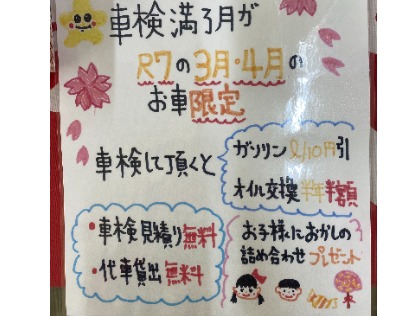 車検満了月が
R7の3月・4月の
お車限定
車検して頂くと
ガソリンℓ/10円引
オイル交換半年半額
・車検見積り無料
・代車貸出無料
お子様におかしの
詰め合わせプレゼント